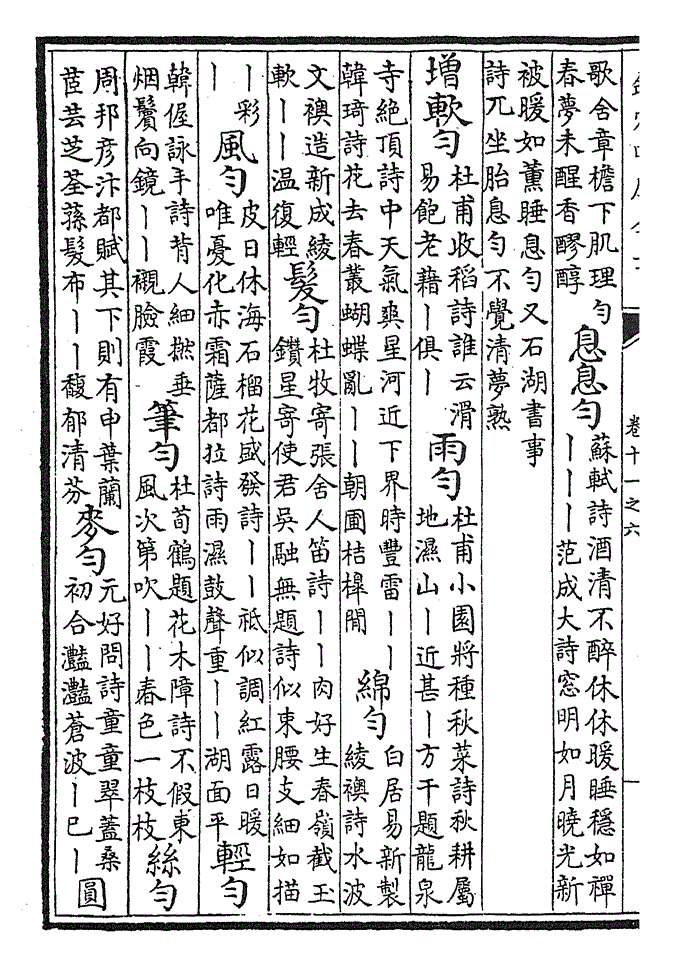 卷十一之六
歌舍章檐下肌理勻
春夢未醒香醪醇
息息勻
蘇軾詩酒清不醉休休暖睡穩如禪
｜｜｜范成大詩窓明如月曉光新
被暖如薰睡息勻又石湖書事
詩兀坐胎息勻不覺清夢熟
增軟勻
杜甫收稻詩誰云滑
易飽老藉｜俱｜
雨勻
杜甫小園將種秋菜詩秋耕屬
地濕山｜近甚｜方干題龍泉
寺絶頂詩中天氣爽星河近下界時豐雷｜｜
韓琦詩花去春叢蝴蝶亂｜｜朝圃桔槔閒
綿勻
白居易新製
綾襖詩水波
文襖造新成綾
軟｜｜温復輕
髮勻
杜牧寄張舍人笛詩｜｜肉好生春嶺截玉
鑽星寄使君吳融無題詩似束腰支細如描
｜彩
｜
風勻
皮日休海石榴花盛發詩｜｜祗似調紅露日暖
唯憂化赤霜薩都拉詩雨濕鼓聲重｜｜湖面平
輕勻
韓偓詠手詩背人細撚垂
烟鬢向鏡｜｜襯臉霞
筆勻
杜荀鶴題花木障詩不假東
風次第吹｜｜春色一枝枝
絲勻
周邦彦汴都賦其下則有申葉蘭
茝芸芝荃蓀髮布｜｜馥郁清芬
麥勻
元好問詩童童翠蓋桑
初合灩灩蒼波｜已｜
圓